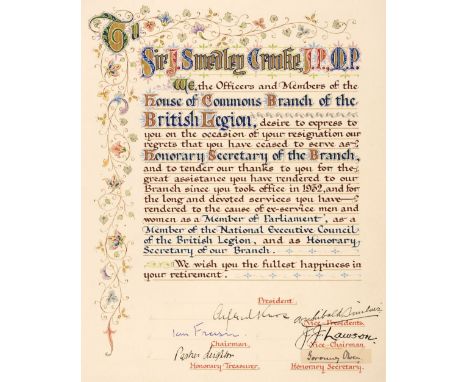 To
Sir J. Smedley Crooke, J.P., M.P.
We, the Officers and Members of the
House of Commons Branch of the
British Legion, desire to express to
you on the occasion of your resignation our
regrets that you have ceased to serve as
Honorary Secretary of the Branch,
and to tender our thanks to you for the
great assistance you have rendered to our
Branch since you took office in 1932, and for
the long and devoted services you have
rendered to the cause of ex-service men and
women as a Member of Parliament, as a
Member of the National Executive Council
of the British Legion, and as Honorary
Secretary of our Branch.
We wish you the fullest happiness in
your retirement.
President
Archibald Sinclair
Vice Presidents
Ian Fraser
J.J. Lawson
Chairman,
Vice-Chairman,
Honorary Treasurer.
Honorary Secretary.